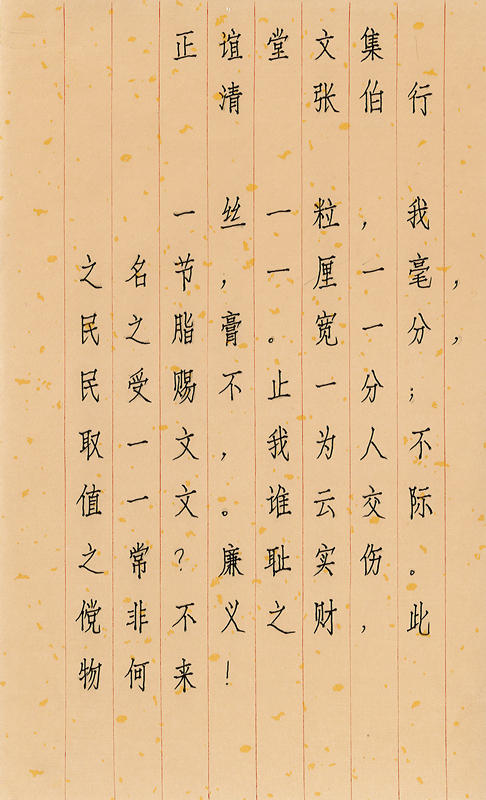 正谊堂文集
清 张伯行
一丝一粒，我
之名节，一厘一毫，
民之脂膏。宽一分，
民受赐不止一分；
取一文，我为人不
值一文。谁云交际
之常？廉耻实伤。
傥非不义之财，此
物何来！